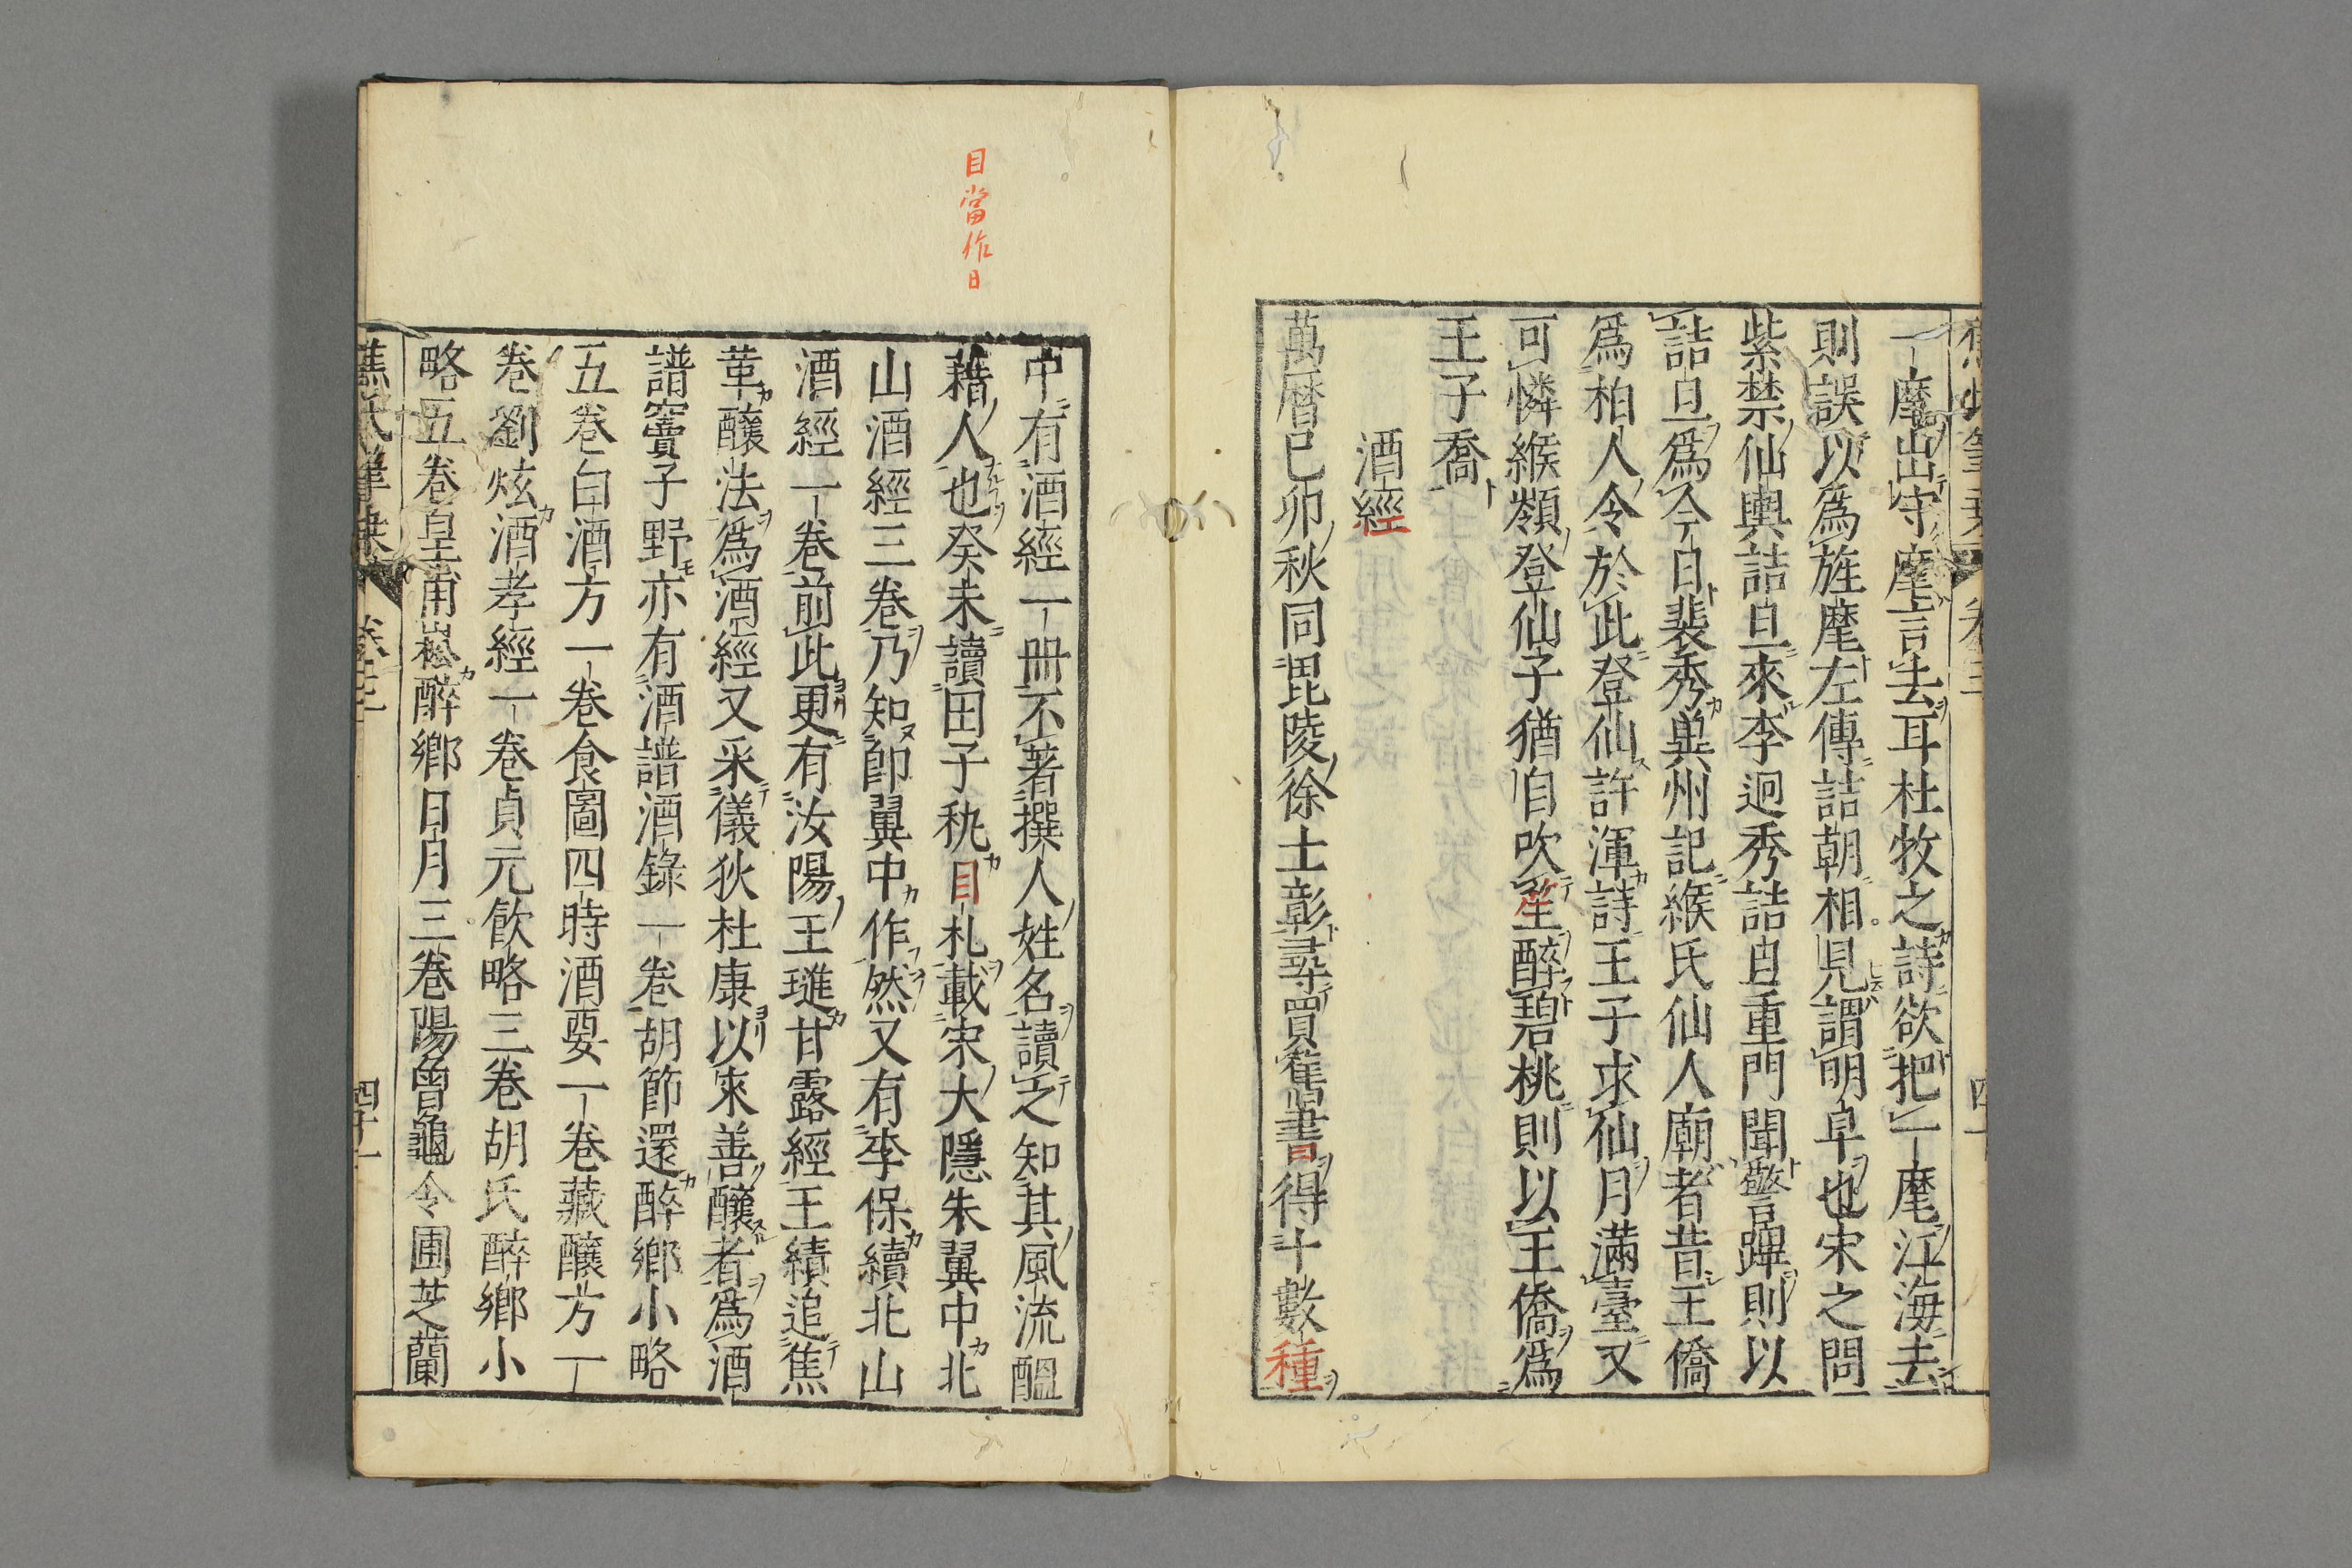 一麾出守麾言去耳杜牧之詩欲把一麾江海去
則誤以爲旌麾左傳詰朝相見謂明早也宋之問
紫禁仙輿詰旦來李迥秀詰旦重門聞警蹕則以
詰旦爲今日裴秀兾州記緱氏仙人廟者昔王僑
爲柏人令於此登仙許渾詩王子求仙月滿臺又
可憐緱嶺登仙子猶自吹笙醉碧桃則以王僑爲
王子喬
酒經
萬曆己卯秋同毘陵徐士彰尋買舊書得十數種
目當作日
中有酒經一冊不著撰人姓名讀之知其風流醞
藉人也癸未讀田子秇目札載宋大隱朱翼中北
山酒經三卷乃知卽翼中作然又有李保續北山
酒經一卷前此更有汝陽王璡甘露經王績追焦
革釀法爲酒經又采儀狄杜康以來善釀者爲酒
譜竇子野亦有酒譜酒錄一卷胡節還醉鄉小略
五卷白酒方一卷食圖四時酒要一卷藏釀方一
卷劉炫酒孝經一卷貞元飲略三卷胡氏醉鄉小
略五卷皇甫崧醉鄉日月三卷陽曾龜令圃芝蘭
焦氏筆乗
四十一